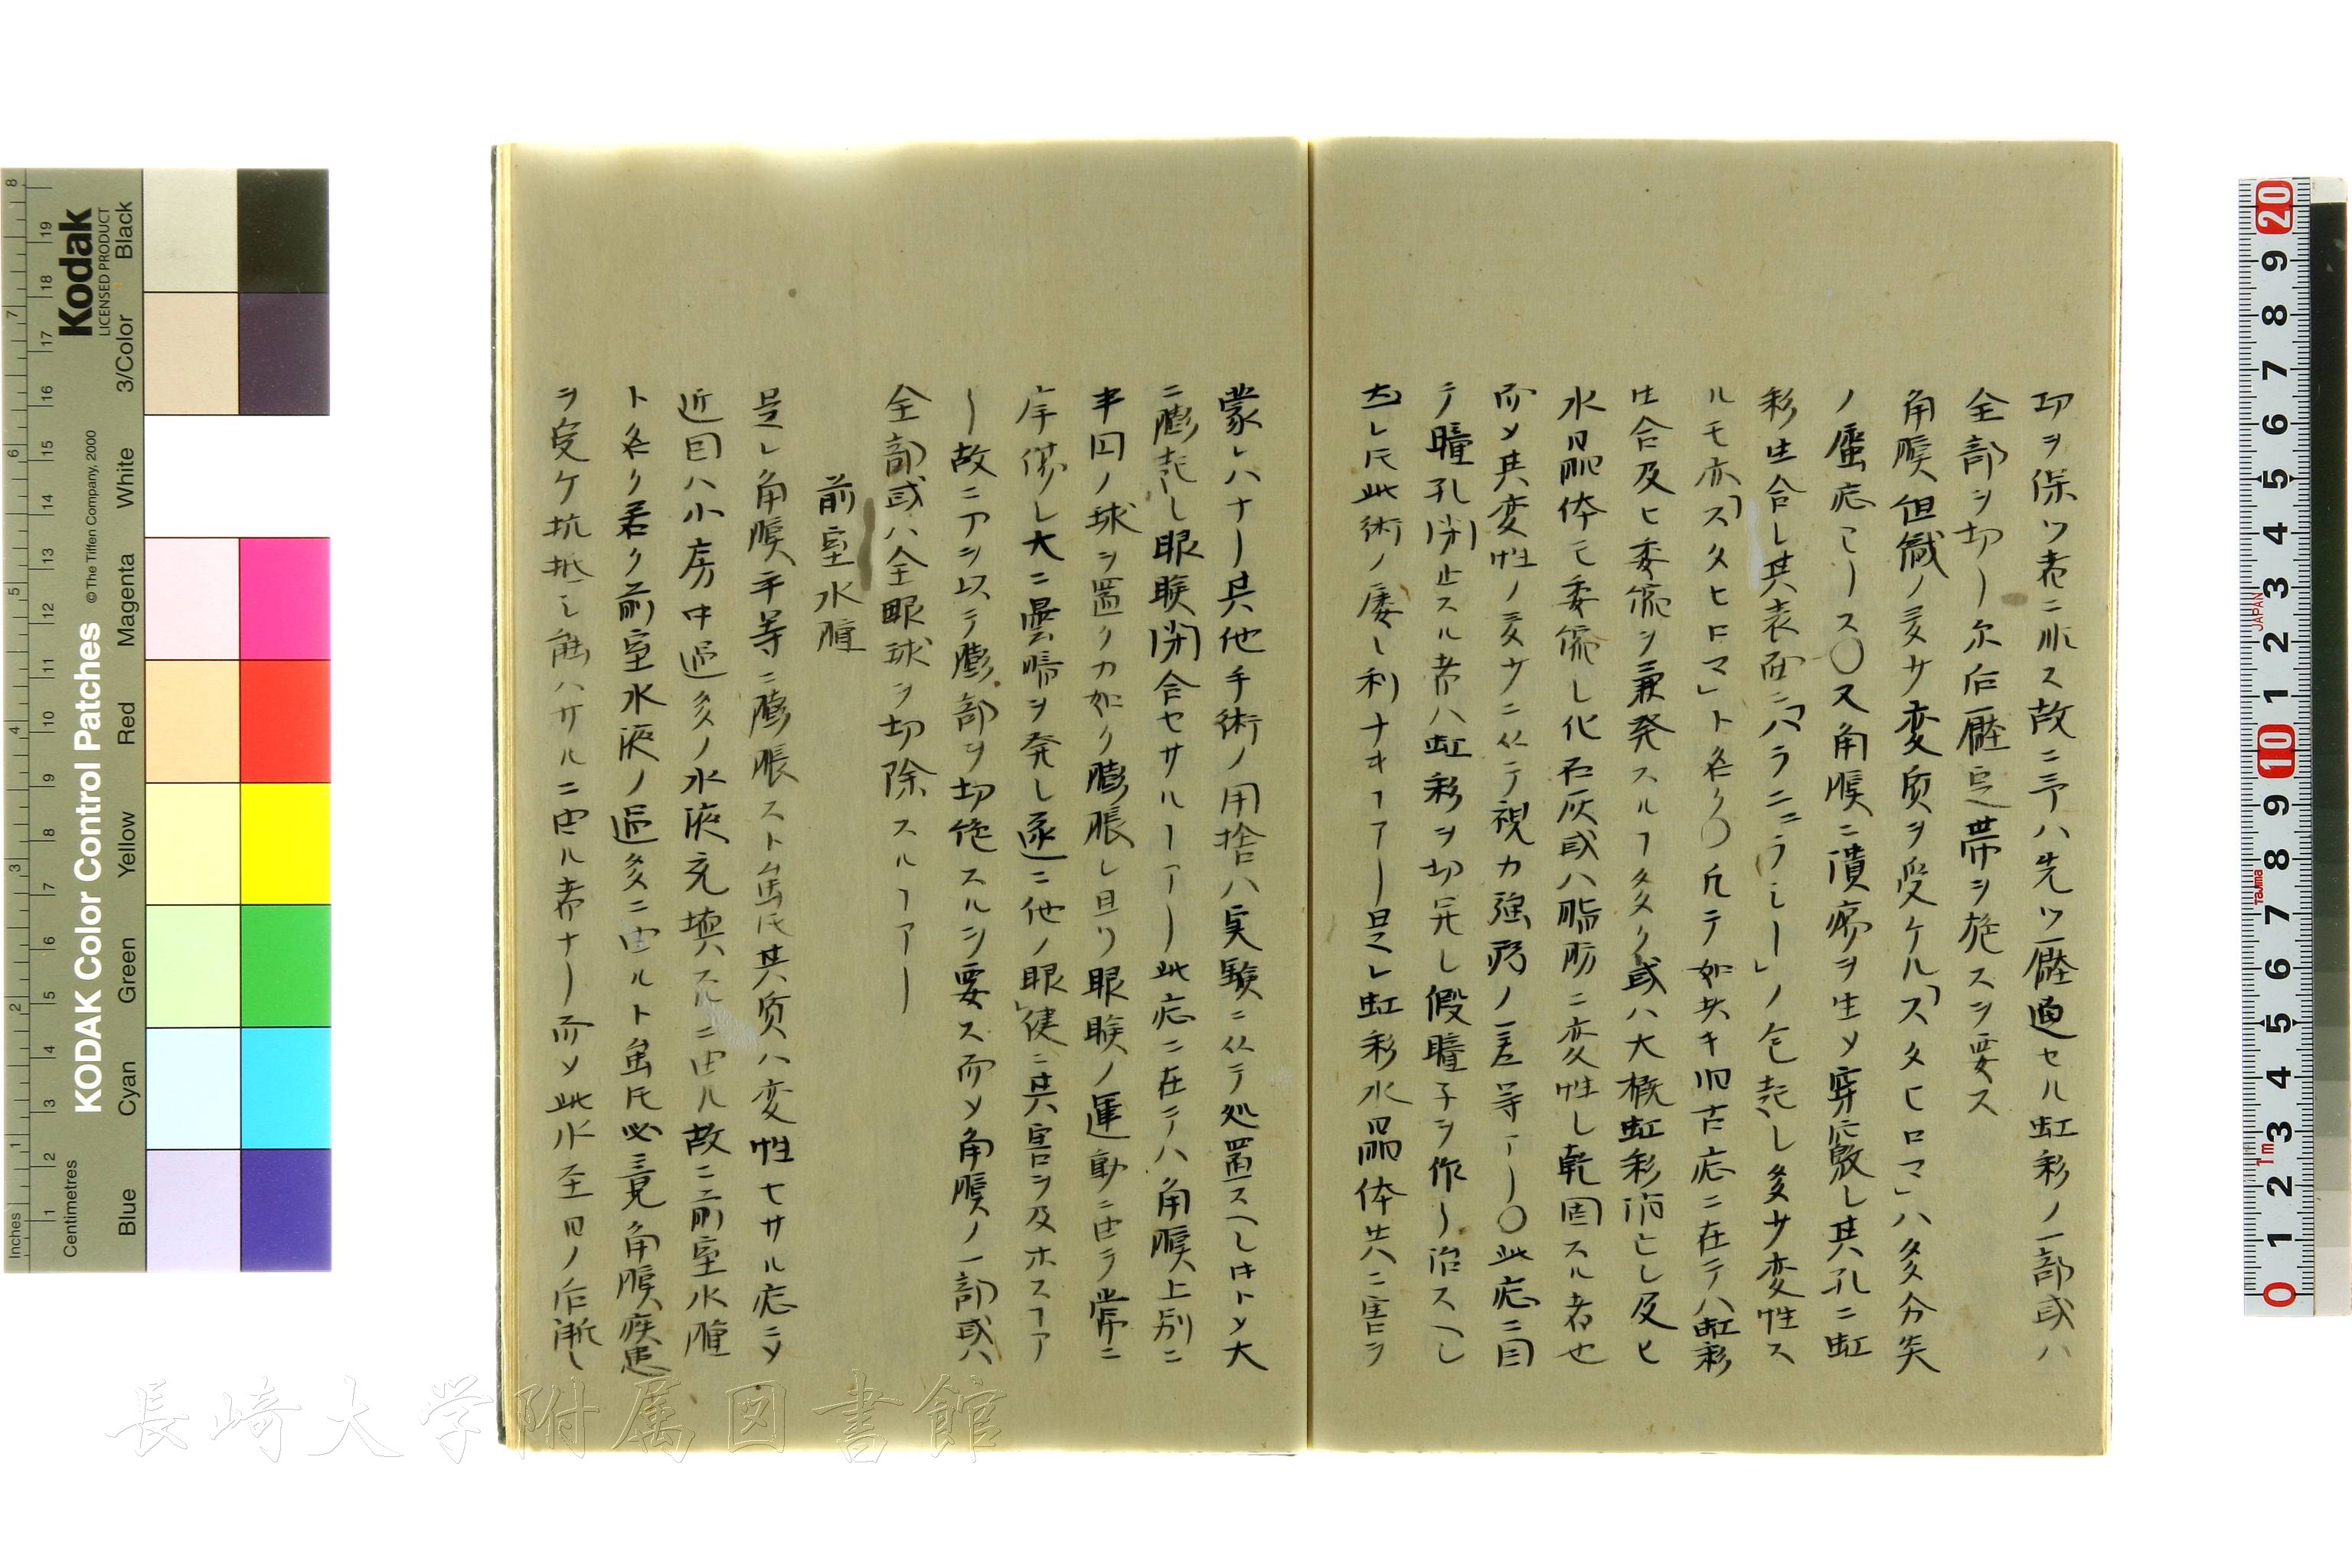 功ヲ保ツ者ニ非ス故ニ予ハ先ツ壓迫セル虹彩ノ一部或ハ
全部ヲ切リ尓后壓定帯ヲ施スヲ要ス
角膜但緘ノ多少変質ヲ受ケル「スタヒロマ」ハ多分失
ノ蜃症ニース〇又角膜ニ潰瘍ヲ生メ穿敗シ其孔ニ虹
彩生合シ其表面ニ「ハラニニラシー」ノ包起シ多少変性ス
ルモ亦「スタヒロマ」ト名ク〇凡テ如共キ旧古症ニ在テハ虹彩
生合及ヒ委縮ヲ兼発スルヿ多ク或ハ大概虹彩亡シ及ヒ
水晶体モ委縮シ化石灰或ハ脂肪ニ変性シ乾固スル者也
而メ其変性ノ多少ニ仍テ視力強弱ノ差等アリ〇此症ニ因
テ瞳孔閉止スル者ハ虹彩ヲ切兂シ假瞳子ヲ作リ治スヘシ
然レ圧此術ノ屡々利ナキヿアリ是レ虹彩水晶体共ニ害ヲ
蒙レハナリ其他手術ノ用捨ハ実験ニ仍テ処置スヘシ廿トメ大
ニ膨起シ眼瞼閉合セサルヿアリ此症ニ在テハ角膜上別ニ
半囚ノ球ヲ置クカ如ク膨脹シ且ツ眼瞼ノ運動ニ由テ常ニ
摩傷シ大ニ曇暗ヲ発シ遂ニ他ノ眼健ニ其害ヲ及ホスヿア
リ故ニ予ヲ以テ膨部ヲ切絶スルヲ要ス而メ角膜ノ一部或ハ
全部或ハ全眼球ヲ切除スルヿアリ
前室水腫
是レ角膜平等ニ膨脹スト雖圧其質ハ変性セサル症ニメ
近因ハ小房中過多ノ水液充填スルニ由ル故ニ前室水腫
ト名ク若ク前室水液ノ過多ニ由ルト雖圧必竟角膜疾患
ヲ受ケ抗抵シ能ハサルニ由ル者ナリ而メ此水至日ノ后漸々
Kodak
LICENSED PRODUCT
KODAK Color Control Patches
© The Tiffen Company, 2000
Inches
Centimetres
Blue
Cyan
Green
Yellow
Red
Magenta
White
3/Color
Black
長崎大学附属図書館